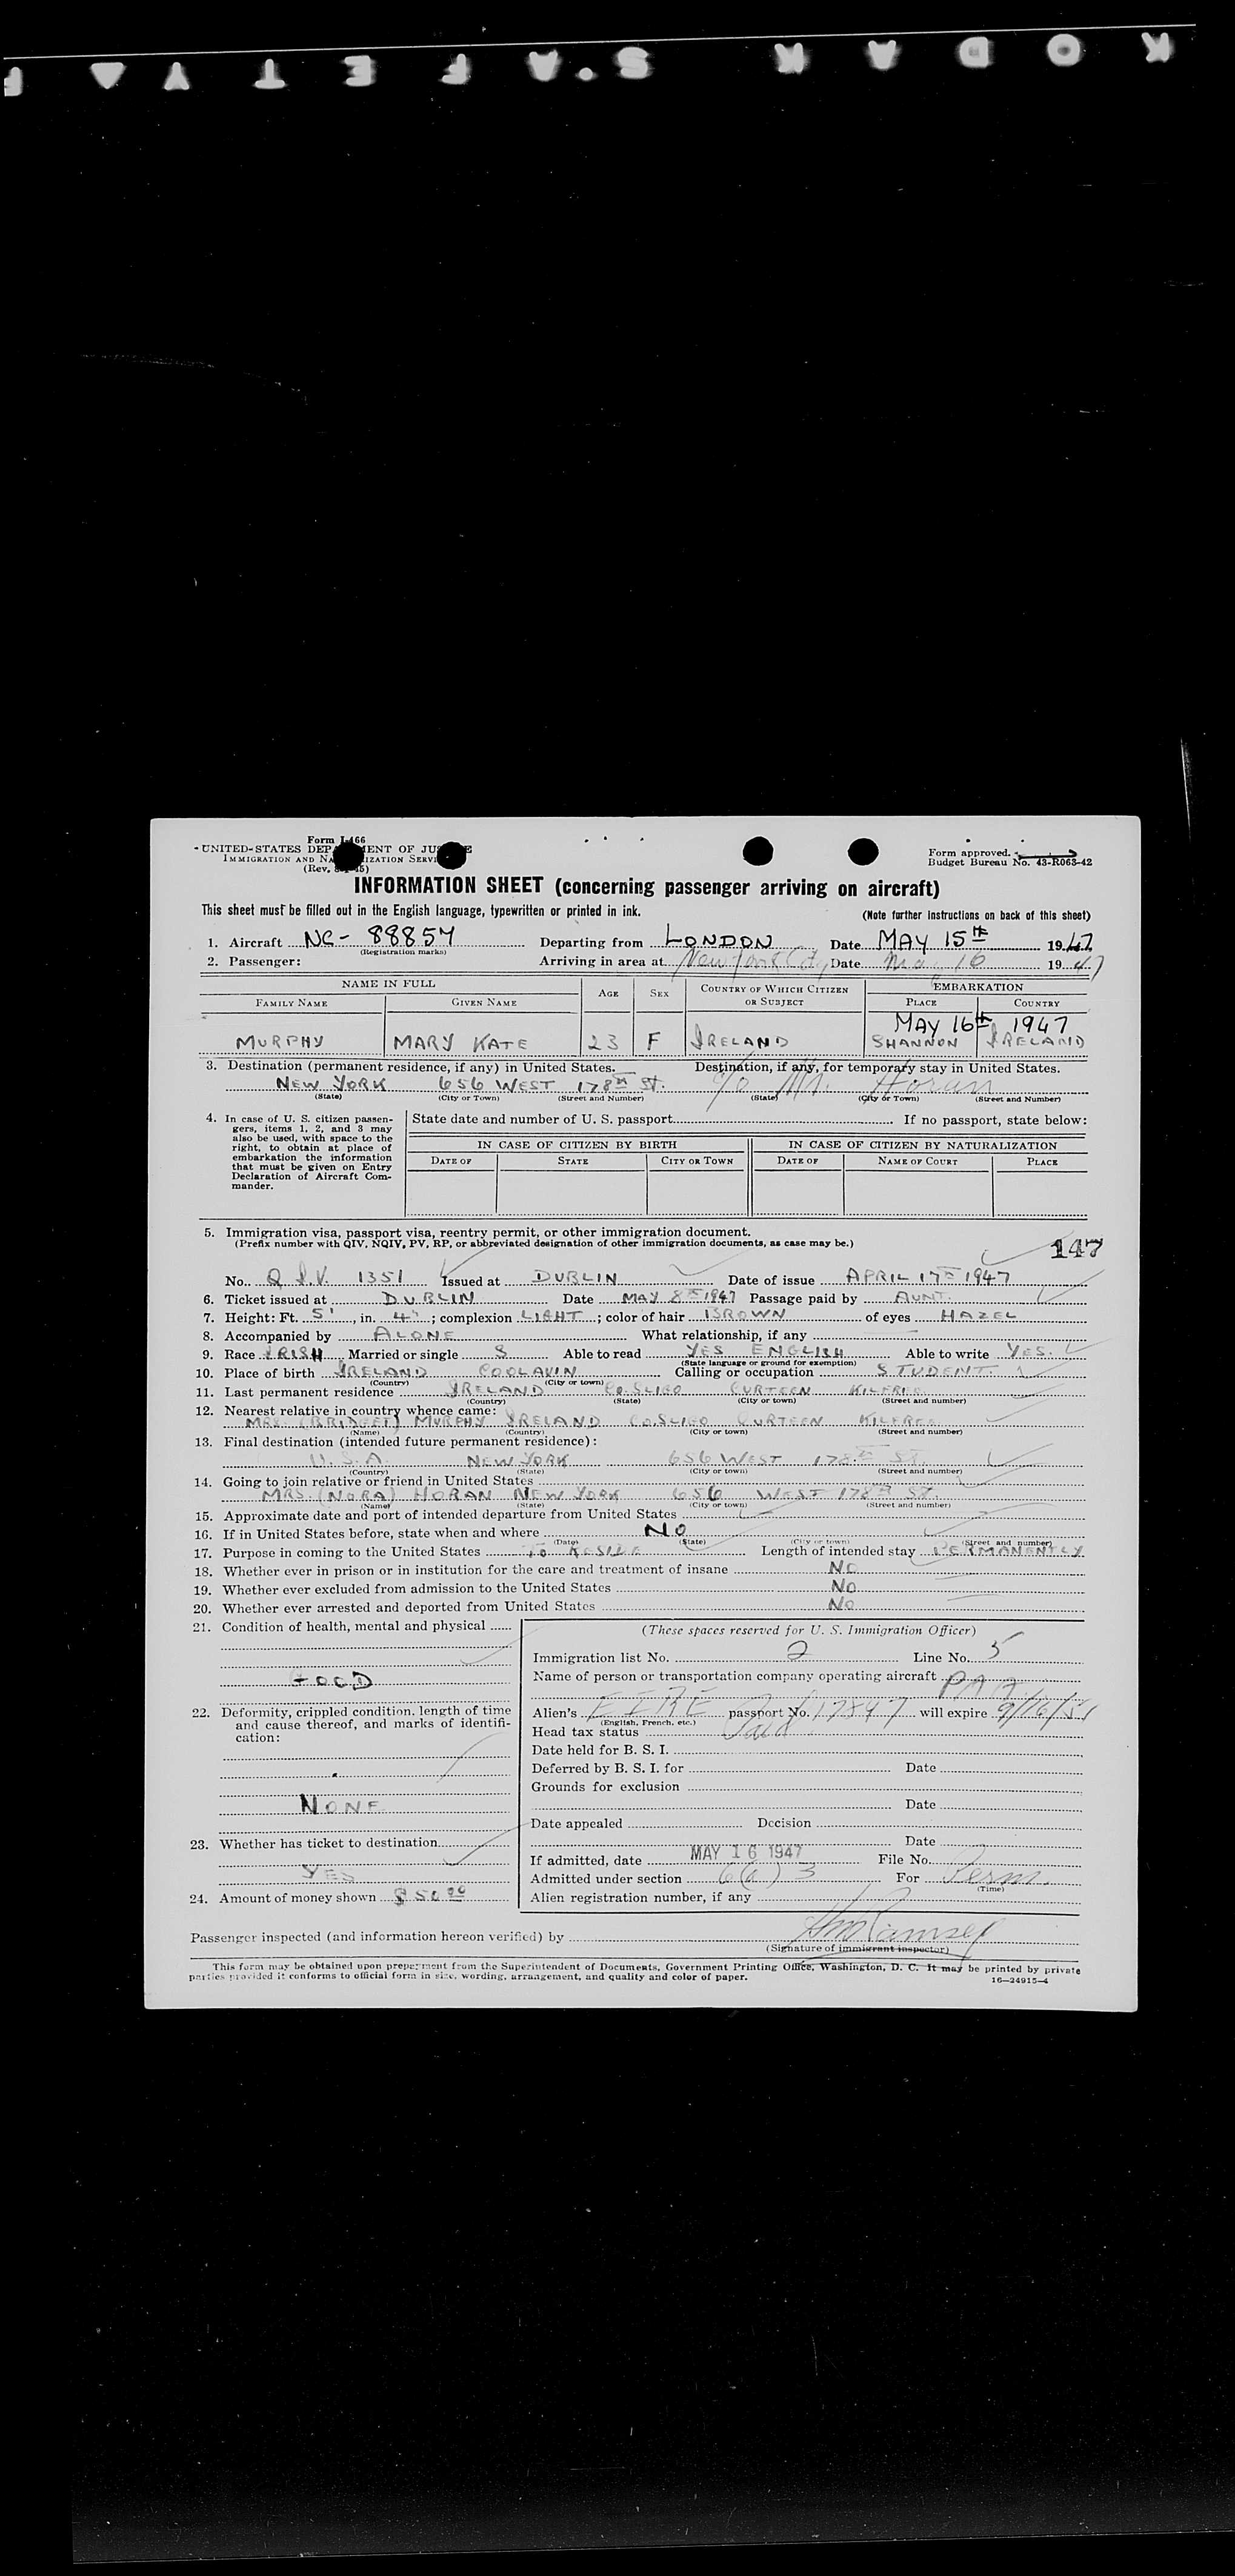 KODAK SAFETY
Form I-466
UNITED STATES DEP MENT OF JU E
IMMIGRATION AND NA IZATION SERVI
(Rev. 8 45)
Form approved.
Budget Bureau No. 43-R063-42
INFORMATION SHEET (concerning passenger arriving on aircraft)
This sheet must be filled out in the English language, typewritten or printed in ink.
(Note further instructions on back of this sheet)
1. Aircraft NC-88857 Departing from LONDON Date MAY 15th 1947
(Registration marks)
2. Passenger: Arriving in area at New York City Date May 16 1947
NAME IN FULL AGE SEX COUNTRY OF WHICH CITIZEN OR SUBJECT EMBARKATION
FAMILY NAME GIVEN NAME PLACE COUNTRY
MAY 16th 1947
MURPHY MARY KATE 23 F IRELAND SHANNON IRELAND
3. Destination (permanent residence, if any) in United States. Destination, if any, for temporary stay in United States.
NEW YORK 656 WEST 178th St. c/o Mr. Horan
(State) (City or Town) (Street and Number) (State) (City or Town) (Street and Number)
4. In case of U. S. citizen passengers, items 1, 2, and 3 may also be used, with space to the right, to obtain at place of embarkation the information that must be given on Entry Declaration of Aircraft Commander.
State date and number of U. S. passport If no passport, state below:
IN CASE OF CITIZEN BY BIRTH IN CASE OF CITIZEN BY NATURALIZATION
DATE OF STATE CITY OR TOWN DATE OF NAME OF COURT PLACE
5. Immigration visa, passport visa, reentry permit, or other immigration document.
(Prefix number with QIV, NQIV, PV, RP, or abbreviated designation of other immigration documents, as case may be.)
147
No. Q I.V. 1351 Issued at DUBLIN Date of issue APRIL 17th 1947
6. Ticket issued at DUBLIN Date MAY 8th 1947 Passage paid by AUNT
7. Height: Ft. 5', in. 4"; complexion LIGHT; color of hair BROWN of eyes HAZEL
8. Accompanied by ALONE What relationship, if any
9. Race IRISH Married or single S Able to read YES ENGLISH Able to write YES.
(State language or ground for exemption)
10. Place of birth IRELAND COOLAVIN Calling or occupation STUDENT
(Country) (City or town)
11. Last permanent residence IRELAND Co. SLIGO CURTEEN KILFREE
(Country) (State) (City or town) (Street and number)
12. Nearest relative in country whence came:
MRS. (BRIDGET) MURPHY IRELAND Co. SLIGO CURTEEN KILFREE
(Name) (Country) (City or town) (Street and number)
13. Final destination (intended future permanent residence):
U.S.A. NEW YORK 656 WEST 178th ST.
(Country) (State) (City or town) (Street and number)
14. Going to join relative or friend in United States
MRS. (NORA) HORAN NEW YORK 656 WEST 178th ST.
(Name) (State) (City or town) (Street and number)
15. Approximate date and port of intended departure from United States
16. If in United States before, state when and where NO
(Date) (State) (City or town) (Street and number)
17. Purpose in coming to the United States TO RESIDE Length of intended stay PERMANENTLY
18. Whether ever in prison or in institution for the care and treatment of insane NO
19. Whether ever excluded from admission to the United States NO
20. Whether ever arrested and deported from United States NO
21. Condition of health, mental and physical
GOOD
22. Deformity, crippled condition, length of time and cause thereof, and marks of identification:
NONE
23. Whether has ticket to destination
YES
24. Amount of money shown $50.00
(These spaces reserved for U. S. Immigration Officer)
Immigration list No. 2 Line No. 5
Name of person or transportation company operating aircraft PAA
Alien's EIRE passport No. will expire
(English, French, etc.)
Head tax status Paid
Date held for B. S. I.
Deferred by B. S. I. for Date
Grounds for exclusion
Date
Date appealed Decision
Date
If admitted, date MAY 16 1947 File No.
Admitted under section 6(a) 3 For Perm.
(Time)
Alien registration number, if any
Passenger inspected (and information hereon verified) by
(Signature of immigrant inspector)
This form may be obtained upon prepayment from the Superintendent of Documents, Government Printing Office, Washington, D. C. It may be printed by private
parties provided it conforms to official form in size, wording, arrangement, and quality and color of paper.
16—24915-4